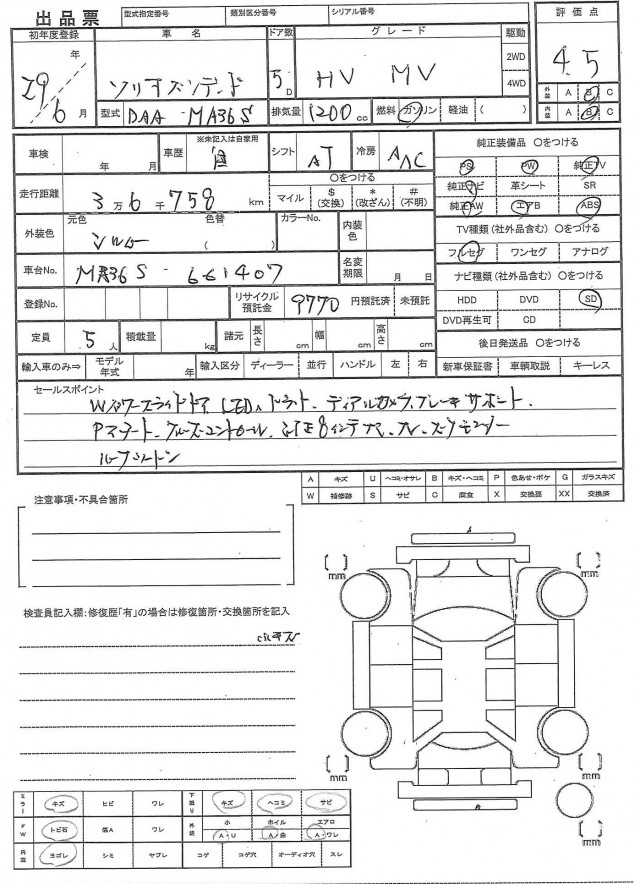 出品票
型式指定番号 類別区分番号 シリアル番号
評価点
初年度登録 車名 ドア数 グレード 駆動
29年 6月
ソリオバンデード 5D HV MV 2WD 4WD
4.5
外装 A B C
内装 A B C
型式 DAA-MA36S 排気量 1200cc 燃料 ガソリン 軽油 ( )
車検 年 月 車歴 ※未記入は自家用 自 シフト AT 冷房 AAC
純正装備品 〇をつける
PS PW 純正TV
純正ナビ 革シート SR
純正AW エアB ABS
走行距離 3万6千758km
〇をつける
マイル $(交換) *(改ざん) #(不明)
外装色 元色 シルバー 色替 ( ) カラーNo. 内装色
TV種類(社外品含む)〇をつける
フルセグ ワンセグ アナログ
車台No. MA36S-661407 名変期限 月 日
ナビ種類(社外品含む)〇をつける
HDD DVD SD
DVD再生可 CD
登録No. リサイクル預託金 9770 円預託済 未預託
定員 5人 積載量 kg 諸元 長さ cm 幅 cm 高さ cm
後日発送品 〇をつける
新車保証書 車輌取説 キーレス
輸入車のみ⇒ モデル年式 年 輸入区分 ディーラー 並行 ハンドル 左 右
セールスポイント
Wパワースライドドア、LEDヘッドライト、デュアルカメラブレーキサポート、
Pスタート、クルーズコントロール、8インチナビ、TV、
A キズ U ヘコミ・オサレ B キズ・ヘコミ P 色あせ・ボケ G ガラスキズ
W 補修跡 S サビ C 腐食 X 交換要 XX 交換済
注意事項・不具合箇所
検査員記入欄:修復歴「有」の場合は修復箇所・交換箇所を記入
キズ
A
[ ]mm [ ]mm
[ ]mm [ ]mm
A
ミラー キズ ヒビ ワレ 下廻り キズ ヘコミ サビ
FW トビ石 傷A ワレ 外装 ホ A・U ホイル A・曲 エアロ A・ワレ
内装 ヨゴレ シミ ヤブレ コゲ コゲ穴 オーディオ穴 スレ